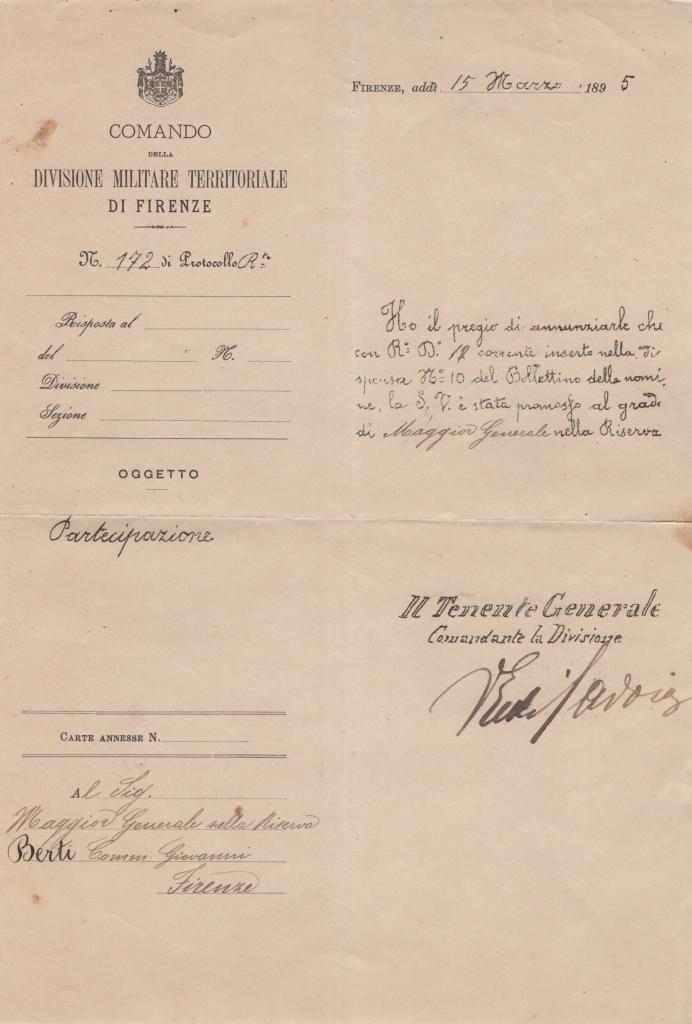 COMANDO
DELLA
DIVISIONE MILITARE TERRITORIALE
DI FIRENZE
N. 172 di Protocollo R.to
Risposta al
del N.
Divisione
Sezione
OGGETTO
Partecipazione
CARTE ANNESSE N.
Al Sig.
Maggior Generale nella Riserva
Berti Comm. Giovanni
Firenze
FIRENZE, addì 15 Marzo 1895
Ho il pregio di annunziarle che
con R.o D.o 12 corrente inserto nella Di
spensa N.o 10 del Bollettino delle nomi
ne, la S. V. è stata promosso al grado
di Maggior Generale nella Riserva
Il Tenente Generale
Comandante la Divisione
di Savoia